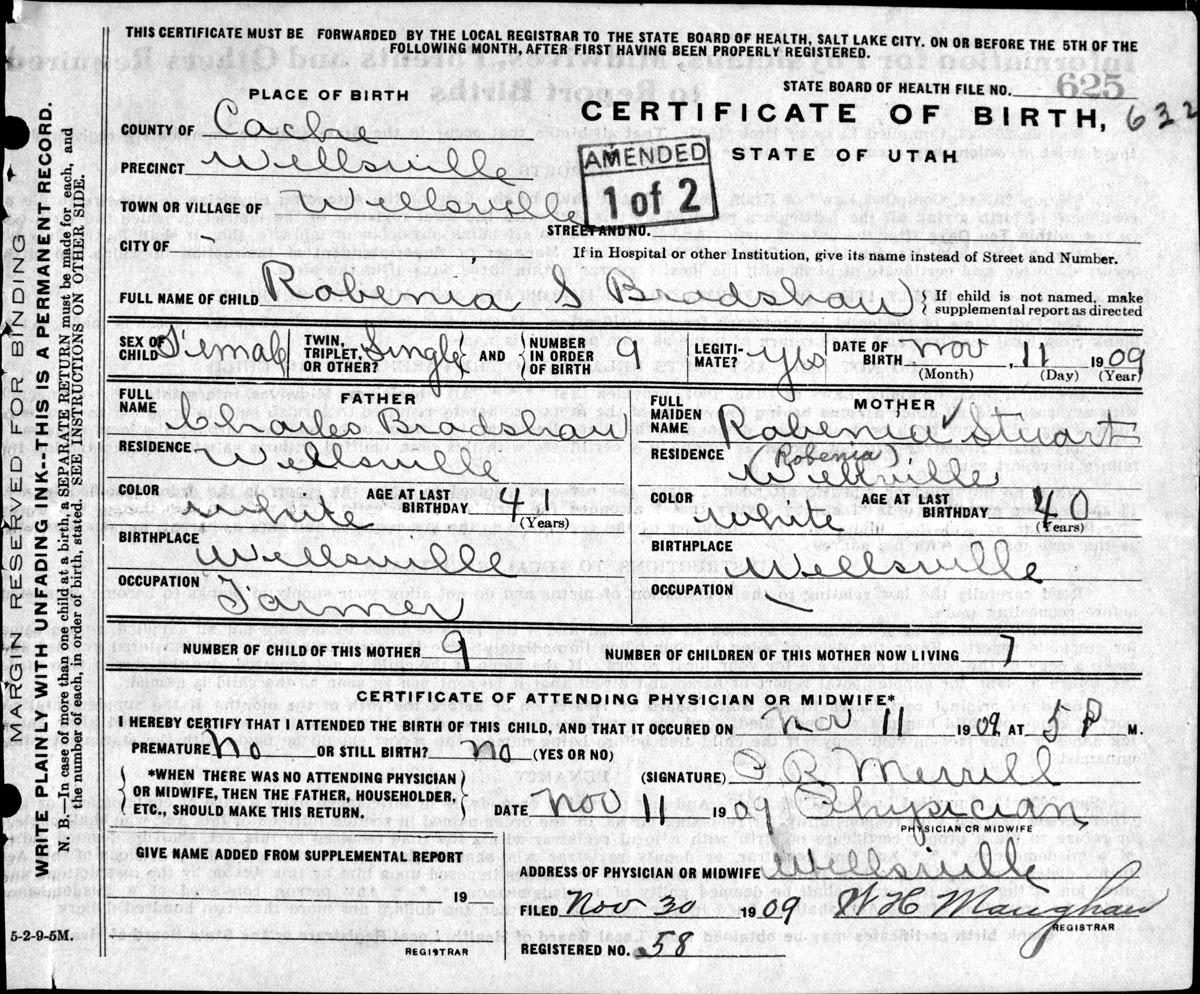 THIS CERTIFICATE MUST BE FORWARDED BY THE LOCAL REGISTRAR TO THE STATE BOARD OF HEALTH, SALT LAKE CITY. ON OR BEFORE THE 5TH OF THE
FOLLOWING MONTH, AFTER FIRST HAVING BEEN PROPERLY REGISTERED.
MARGIN RESERVED FOR BINDING
WRITE PLAINLY WITH UNFADING INK--THIS IS A PERMANENT RECORD.
N. B.—In case of more than one child at a birth, a SEPARATE RETURN must be made for each, and
the number of each, in order of birth, stated. SEE INSTRUCTIONS ON OTHER SIDE.
STATE BOARD OF HEALTH FILE NO. 625
PLACE OF BIRTH
CERTIFICATE OF BIRTH, 632
STATE OF UTAH
COUNTY OF Cache
PRECINCT Wellsville
AMENDED
1 of 2
TOWN OR VILLAGE OF Wellsville
STREET AND NO.
CITY OF
If in Hospital or other Institution, give its name instead of Street and Number.
FULL NAME OF CHILD Robenia S Bradshaw { If child is not named, make
supplemental report as directed
SEX OF CHILD Female TWIN, TRIPLET, OR OTHER? Single AND NUMBER IN ORDER OF BIRTH 9 LEGITI- MATE? yes DATE OF BIRTH Nov, 11 1909
(Month) (Day) (Year)
FATHER
FULL NAME Charles Bradshaw
RESIDENCE Wellsville
COLOR White AGE AT LAST BIRTHDAY 41
(Years)
BIRTHPLACE Wellsville
OCCUPATION Farmer
MOTHER
FULL MAIDEN NAME Robenia Stuart
Robenia
RESIDENCE Wellville
COLOR White AGE AT LAST BIRTHDAY 40
(Years)
BIRTHPLACE Wellsville
OCCUPATION
NUMBER OF CHILD OF THIS MOTHER 9 NUMBER OF CHILDREN OF THIS MOTHER NOW LIVING 7
CERTIFICATE OF ATTENDING PHYSICIAN OR MIDWIFE*
I HEREBY CERTIFY THAT I ATTENDED THE BIRTH OF THIS CHILD, AND THAT IT OCCURED ON Nov 11 1909, AT 5 P M.
PREMATURE No OR STILL BIRTH? No (YES OR NO)
*WHEN THERE WAS NO ATTENDING PHYSICIAN
OR MIDWIFE, THEN THE FATHER, HOUSEHOLDER,
ETC., SHOULD MAKE THIS RETURN.
(SIGNATURE) Merrill
DATE Nov 11 1909 Physician
PHYSICIAN OR MIDWIFE
GIVE NAME ADDED FROM SUPPLEMENTAL REPORT
19
REGISTRAR
ADDRESS OF PHYSICIAN OR MIDWIFE Wellsville
FILED Nov 30 1909 W H Maughan
REGISTRAR
REGISTERED NO. 58
5-2-9-5M.